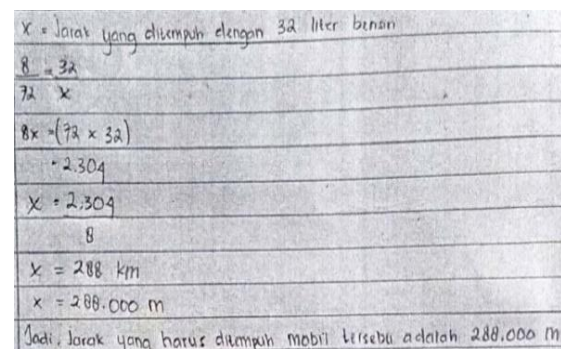 x = Jarak yang ditempuh dengan 32 liter bensin
8 = 32
72 x
8x = (72 x 32)
= 2.304
x = 2.304
8
x = 288 km
x = 288.000 m
Jadi, Jarak yang harus ditempuh mobil tersebut adalah 288.000 m